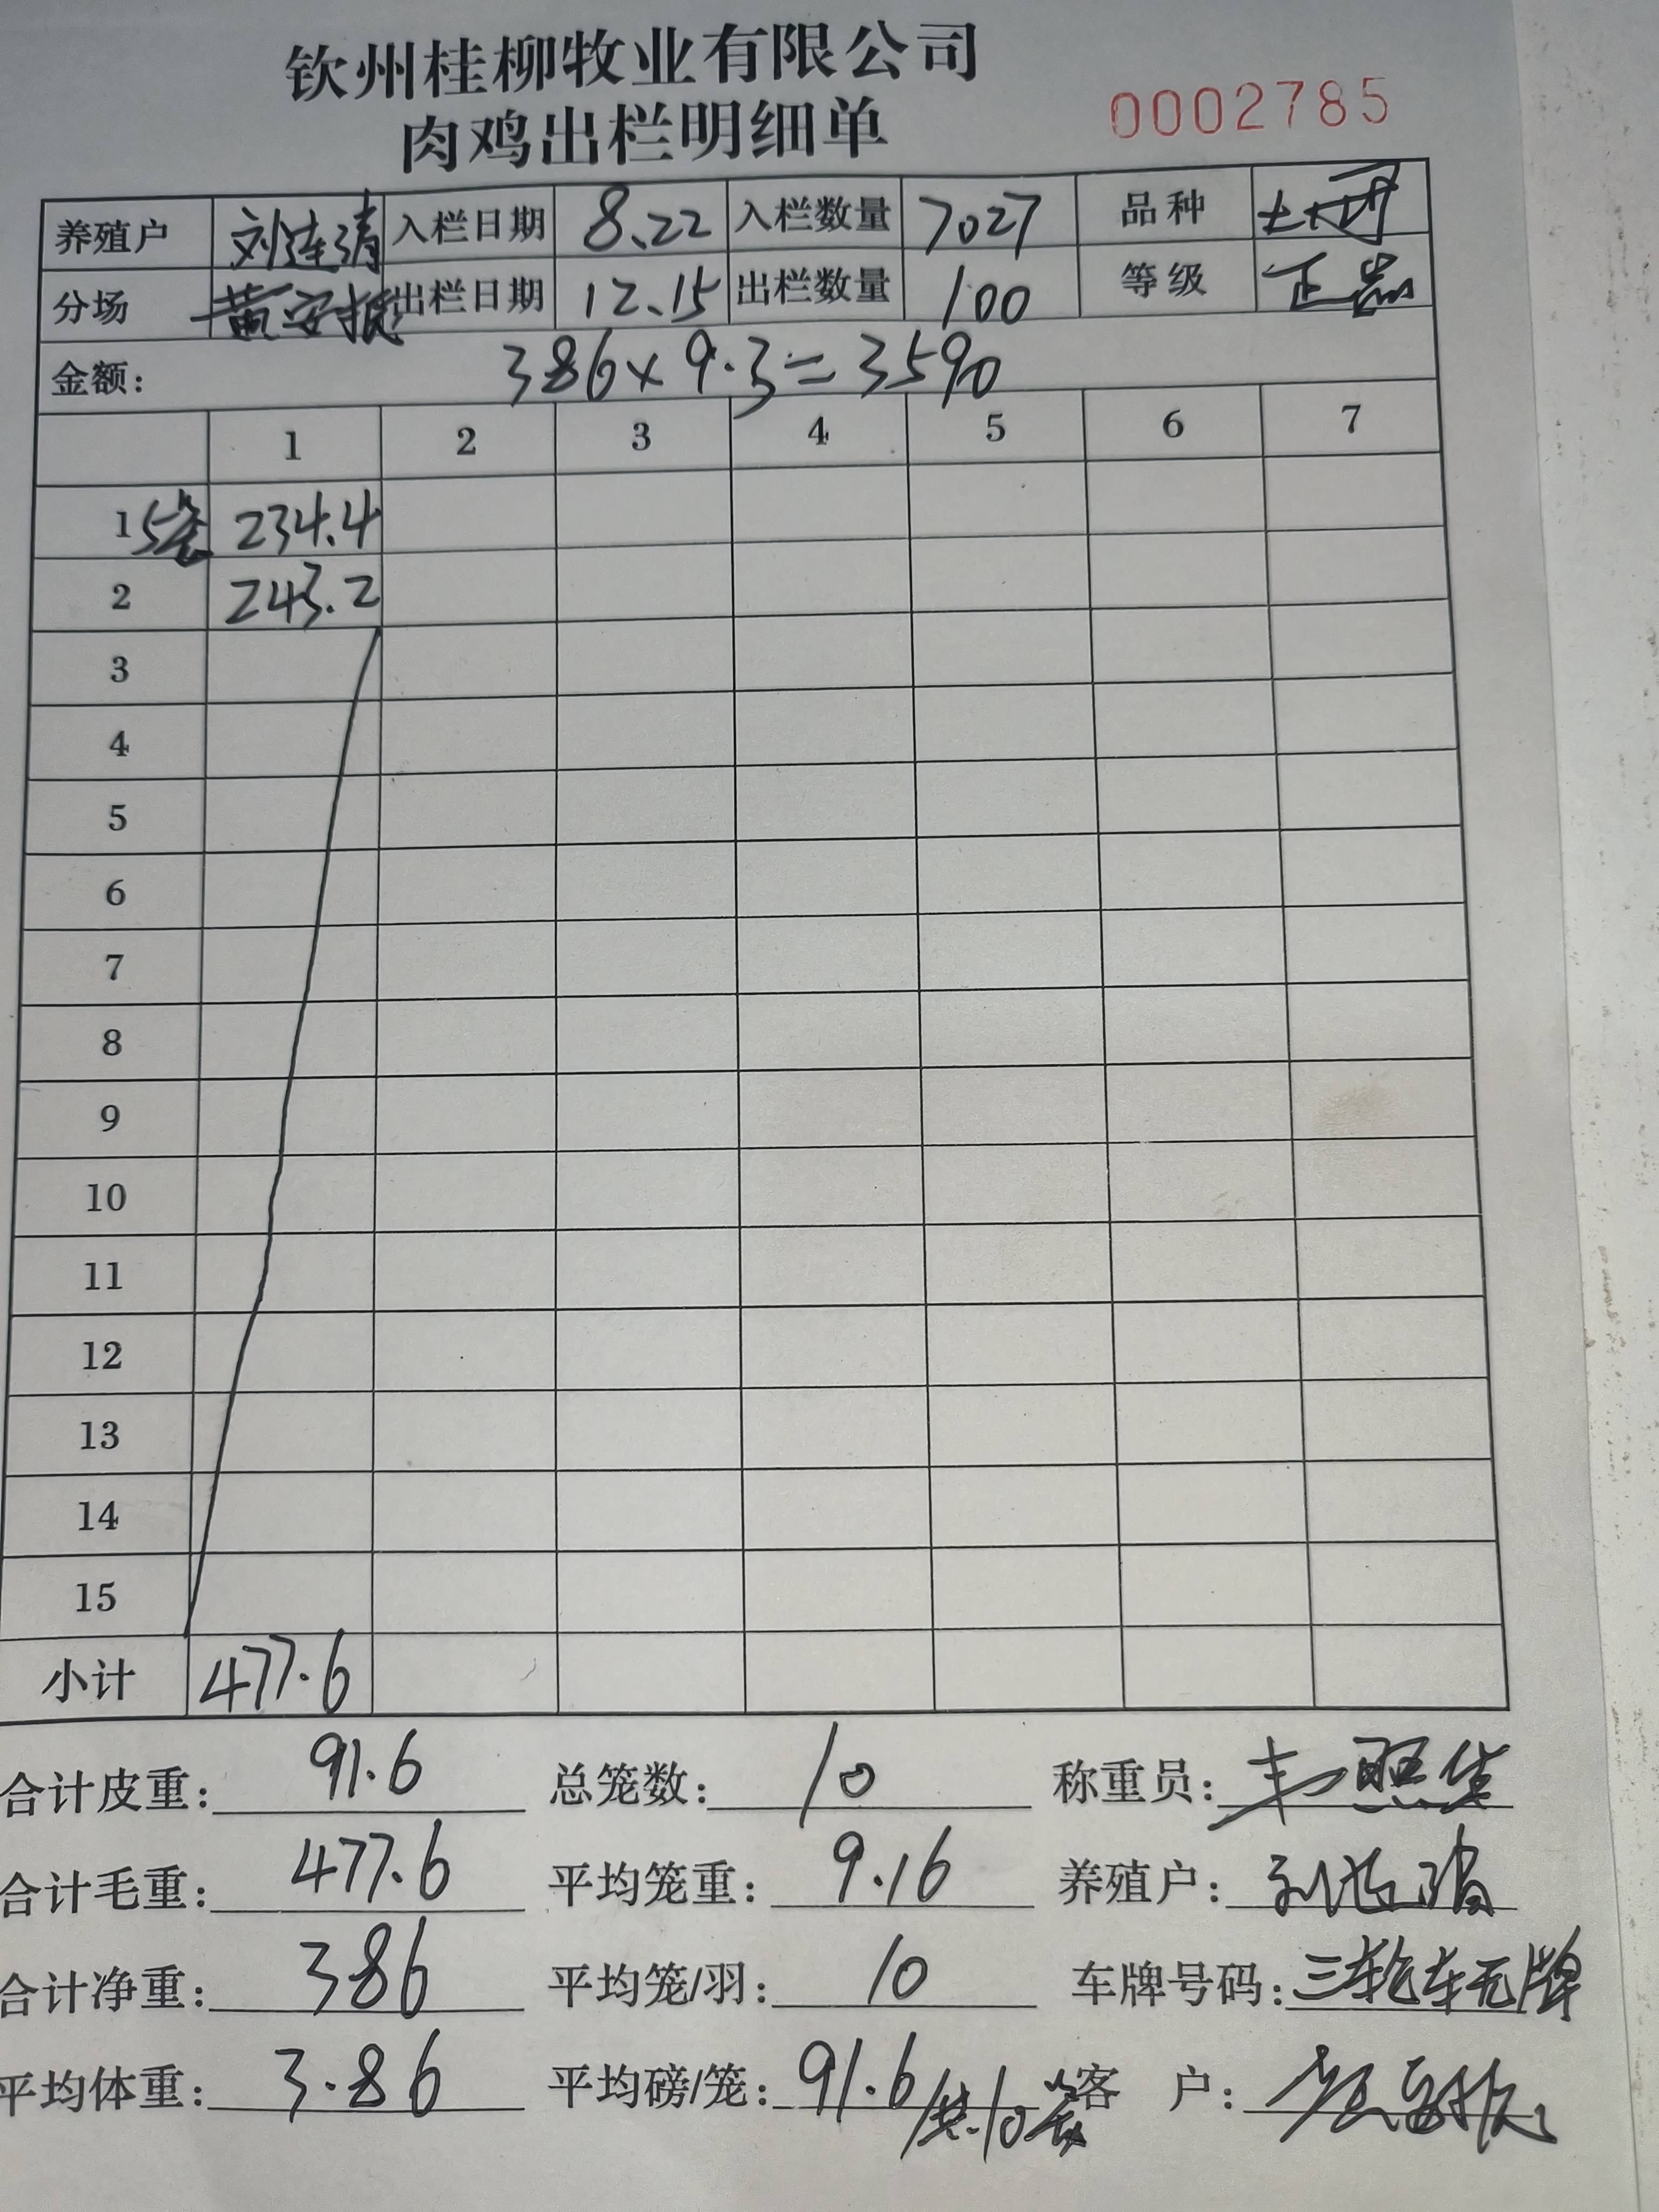 钦州桂柳牧业有限公司
肉鸡出栏明细单
0002785
养殖户 刘连清 入栏日期 8.22 入栏数量 7027 品种
分场 黄安振 出栏日期 12.15 出栏数量 100 等级 正品
金额: 386×9.3=3590
1 2 3 4 5 6 7
1 5笼 234.4
2 243.2
3
4
5
6
7
8
9
10
11
12
13
14
15
小计 477.6
合计皮重: 91.6 总笼数: 10 称重员:
合计毛重: 477.6 平均笼重: 9.16 养殖户: 刘连清
合计净重: 386 平均笼/羽: 10 车牌号码: 三轮车无牌
平均体重: 3.86 平均磅/笼: 91.6/共10笼 客 户: 黄安振